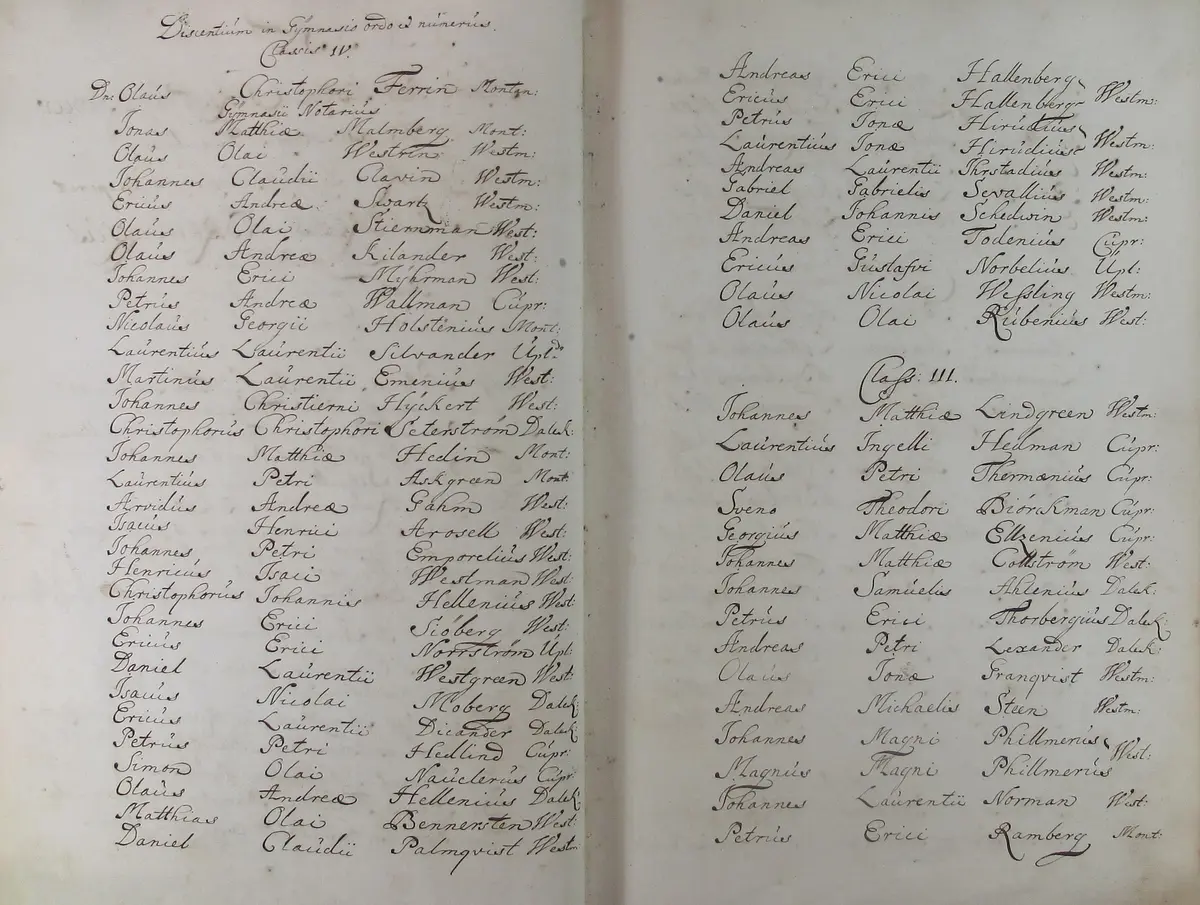 Discentium in Gÿmnasio ordo et numerus.
Classis IV.
Dn: Olaus Christophori Ferrin Montan:
Gÿmnasii Notarius
Jonas Matthiæ Malmberg Mont:
Olaus Olai Westrin Westm:
Johannes Claudii Clavin Westm:
Ericus Andreæ Swartz Westm:
Olaus Olai Stiernman West:
Olaus Andreæ Kilander West:
Johannes Erici Mÿhrman West:
Petrus Andreæ Wallman Cupr:
Nicolaus Georgii Holstenius Mont:
Laurentius Laurentii Silvander Upl:
Martinus Laurentii Emenius West:
Johannes Christierni Hÿckert West:
Christophorus Christophori Seterström Dalek:
Johannes Matthiæ Hedin Mont:
Laurentius Petri Askgræn Mont
Arvidus Andreæ Gahm West:
Isacus Henrici Arosell West:
Johannes Petri Emporelius West:
Henricus Isaci Westman West:
Christophorus Johannis Hellenius West:
Johannes Erici Siöberg West:
Ericus Erici Norrström Upl:
Daniel Laurentii Westgræn West:
Isacus Nicolai Moberg Dalek:
Ericus Laurentii Dicander Dalek:
Petrus Petri Hedlind Cupr:
Simon Olai Nauclerus Cupr:
Olaus Andreæ Hellenius Dalek:
Matthias Olai Bennersten West:
Daniel Claudii Palmqvist Westm:
Andreas Erici Hallenberg
Ericus Erici Hallenberg Westm:
Petrus Jonæ Hirudius
Laurentius Jonæ Hirudius Westm:
Andreas Laurentii Thrstadius Westm:
Gabriel Gabrielis Sevallius Westm:
Daniel Johannis Schedwin Westm:
Andreas Erici Todenius Cupr:
Ericus Gustafvi Norbelius Upl:
Olaus Nicolai Wessling Westm:
Olaus Olai Rubenius West:
Class: III.
Johannes Matthiæ Lindgreen Westm:
Laurentius Ingelli Hedman Cupr:
Olaus Petri Thermænius Cupr:
Sveno Theodori Biörckman Cupr:
Georgius Matthiæ Elfzenius Cupr:
Johannes Matthiæ Collström West:
Johannes Samuelis Ahlenius Dalek:
Petrus Erici Thorbergius Dalek:
Andreas Petri Lexander Dalek:
Olaus Jonæ Granqvist Westm:
Andreas Michaelis Steen Westm:
Johannes Magni Phillmerus
Magnus Magni Phillmerus West:
Johannes Laurentii Norman West:
Petrus Erici Ramberg Mont: